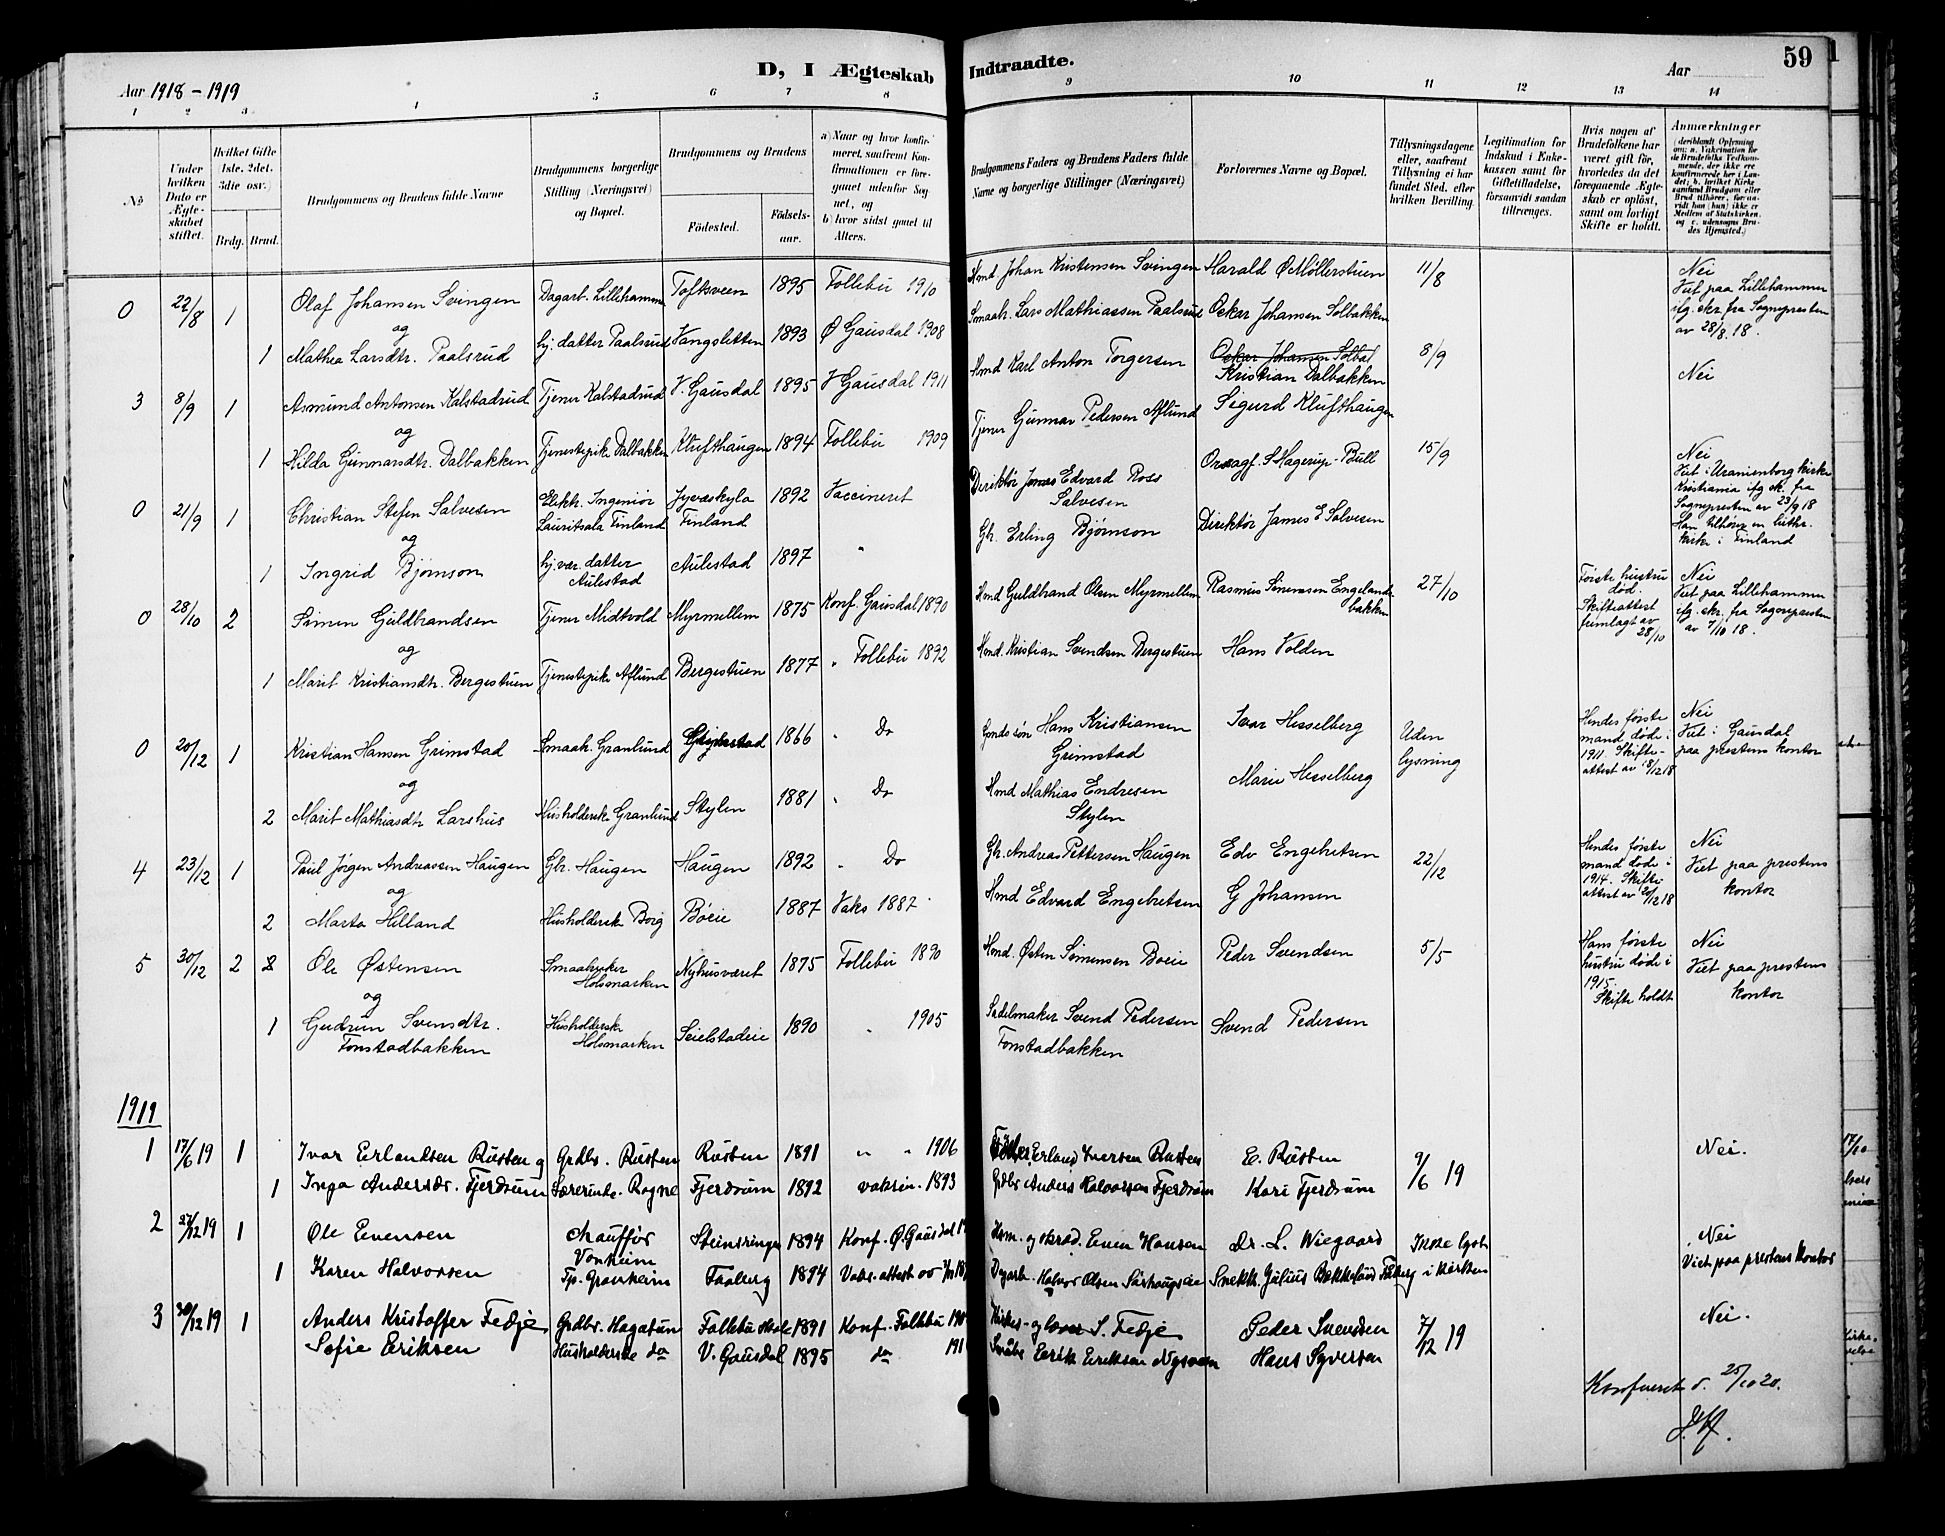 Aar 1918 - 1919
D, I Ægteskab Indtraadte.
Aar
59
1 2 3 4 5 6 7 8 9 10 11 12 13 14
No
Under hvilken Dato er Ægteskabet stiftet.
Hvilket Gifte 1ste. 2det. 3die osv.)
Brdg. Brud.
Brudgommens og Brudens fulde Navne
Brudgommens borgerlige Stilling (Næringsvei) og Bopæl.
Brudgommens og Brudens
Fødested.
Fødselsaar.
a) Naar og hvor konfirmeret, saafremt Konfirmationen er foregaaet udenfor Sognet, og
b) hvor sidst gaaet til Alters.
Brudgommens Faders og Brudens Faders fulde Navne og borgerlige Stillinger (Næringsvei)
Forlovernes Navne og Bopæl.
Tillysningsdagene eller, saafremt Tillysning ei har fundet Sted, efter hvilken Bevilling.
Legitimation for Indskud i Enkekassen samt for Giftetilladelse, forsaavidt saadan tiltrænges.
Hvis nogen af Brudefolkene har været gift før, hvorledes da det foregaaende Ægteskab er opløst, samt om lovligt Skifte er holdt.
Anmærkninger (deriblandt Oplysning om: a. Vakcination for de Brudefolks Vedkommende, der ikke ere konfirmerede her i Landet; b. hvilket Kirkesamfund Brudgom eller Brud tilhører, forsaavidt han (hun) ikke er Medlem af Statskirken, og c. udensogns Brudes Hjemsted.)
0 22/8 1 Olaf Johansen Svingen Dagarb. Lillehammer Toftsveen 1895 Follebu 1910 Hmd Johan Kristensen Svingen Harald Ø Møllerstuen 11/8 Nei
Viet paa Lillehammer ifg. skr. fra Sognepresten av 28/8.18.
og
1 Mathea Larsdtr. Paalsrud hj. datter Paalsrud Vangsletten 1893 Ø Gausdal 1908 Smaabr. Lars Mathiassen Paalsrud Oskar Johansen Solbakken
3 8/9 1 Asmund Antonsen Kalstadrud Tjener Kalstadrud V. Gausdal 1895 V Gausdal 1911 Hmd Karl Anton Torgersen Oskar Johansen Solbak Kristian Dalbakken 8/9 Nei
og
1 Hilda Gunnarsdtr. Dalbakken Tjenestepike Dalbakken Klufthaugen 1894 Follebu 1909 Tjener Gunnar Pedersen Aflund Sigurd Klufthaugen
0 21/9 1 Christian Stefen Salvesen Elektr. Ingeniør Lauritsala Finland Jyvæskyla Finland 1892 Vaccineret Direktør James Edvard Ross Salvesen Orsagf. S Hagerup-Bull 15/9 Nei
Viet i Uranienborg kirke Kristiania ifg sk. fra Sognepresten av 23/9 18
Han tilhører en luthr. kirke i Finland
og
1 Ingrid Bjørnson hj.vær. datter Aulestad Aulestad 1897 " Gb. Erling Bjørnson Direktør James E Salvesen
0 28/10 2 Simen Guldbrandsen Tjener Midtvold Myrmellem 1875 Konf. Gausdal 1890 Hmd Guldbrand Olsen Myrmellem Rasmus Simensen Engelandsbakken 27/10 Første hustru død. Skifteattest fremlagt av 28/10 Nei
Viet paa Lillehammer ifg. skr. fra Sognepresten av 7/10 18.
og
1 Marit Kristiansdtr. Bergestuen Tjenestepike Aflund Bergestuen 1877 " Follebu 1892 Hmd. Kristian Svendsen Bergestuen Hans Volden
0 20/12 1 Kristian Hansen Grimstad Smaab. Granlund 1866 " Do Hans Kristiansen Grimstad Ivar Hesselberg Uden lysning Hendes første mand døde i 1911. Skifteattest av 18/12 18 Nei
Viet i Gausdal paa prestens kontor
og
2 Marit Mathiasdtr Larshus Husholderske Granlund Stylen 1881 " Do Hmd Mathias Endresen Stylen Marie Hesselberg
4 23/12 1 Paul Jørgen Andreassen Haugen Gbr. Haugen Haugen 1892 " Do Gb. Andreas Pettersen Haugen Edv Engebretsen 22/12 Hendes første mand døde i 1914. Skifteattest av 20/12 18 Nei
Viet paa prestens kontor
og
2 Marta Helland Husholdersk. Borg Bøeie 1887 Vaks 1887 Hmd Edvard Engebretsen G Johansen
5 30/12 2 Ole Østensen Smaabruker Holsmarken Nyhusværet 1875 Follebu 1890 Hmd. Østen Simensen Boeie Peder Svendsen 5/5 Hans første hustru døde i 1915. Skifte holdt Nei
Viet paa prestens kontor
og
1 Gudrun Svendsdtr. Fonstadbakken Husholdersk Holsmarken Seielstadeie 1890 " 1905 Sadelmaker Svend Pedersen Fonstadbakken Svend Pedersen
1919
1 17/6 19 1 Ivar Erlandsen Rusten og Grdbr. Rusten Rusten 1891 " " 1906 Erland Iversen Rusten E. Rusten 9/6 19 Nei.
1 Inga Andersdr. Fjerdrum Lærerinde. Rogne Fjerdrum 1892 vaksin. 1893 Grdbr Anders Halvorsen Fjerdrum Kari Fjerdrum
2 27/12 19 1 Ole Evensen Chauffør Vonheim Steinsringen 1894 Konf. Ø. Gausdal 19 Hsm. og skrad. Even Hansen Dr. L. Wiegaard Nei
1 Karen Halvorsen Tp. Grankeim Faaberg 1894 Vaks. attest Dagarb. Halvor Olsen Snekk. Julius i kirken Viet paa prestens kontor
3 30/12 19 1 Anders Kristoffer Fedje Grdbr. Hagatun Follebu skole 1891 Konf. Follebu Kirkes. og S. Fedje Peder Svendsen 7/12 19 Nei.
Sofie Eriksen Husholderske do V. Gausdal 1895 do 191 Småbr Erik Eriksen Nysveen Hans Syversen
Konfereret d. 25/10 20.